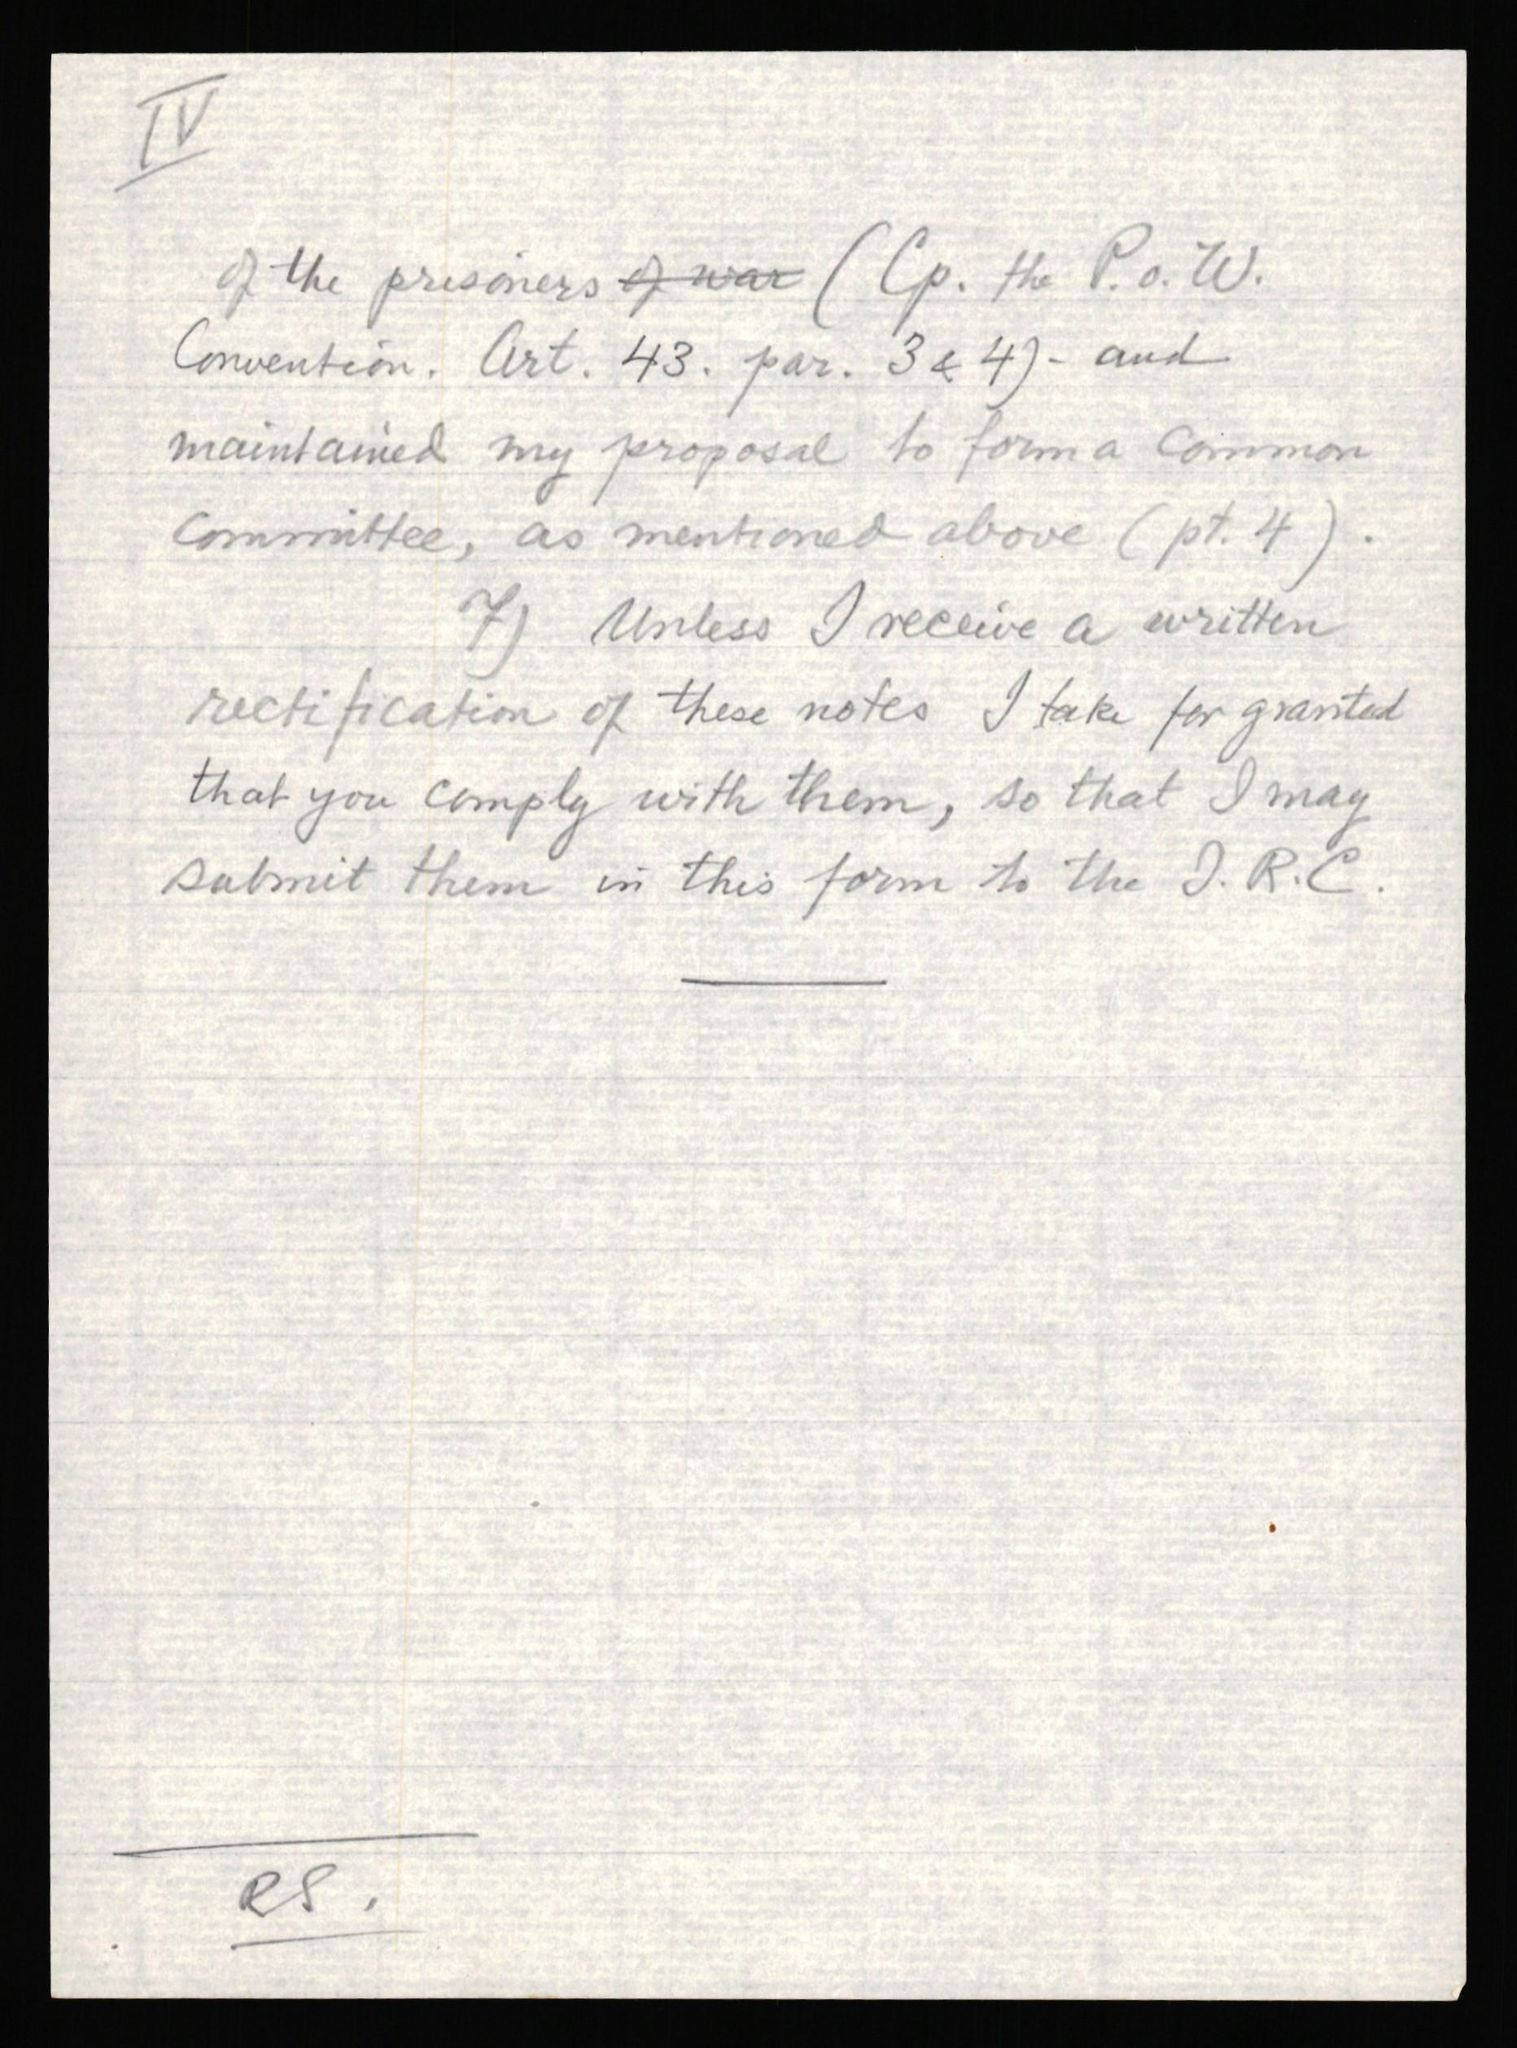 IV
of the prisoners of war (Cp. the P.o.W.
Convention. Art. 43. par. 3 & 4) - and
maintained my proposal to form a common
committee, as mentioned above (pt. 4).
7) Unless I receive a written
rectification of these notes I take for granted
that you comply with them, so that I may
submit them in this form to the I.R.C.